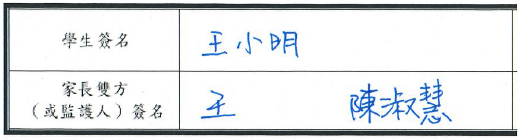 學生簽名 王小明
家長雙方
（或監護人）簽名 王 陳淑慧